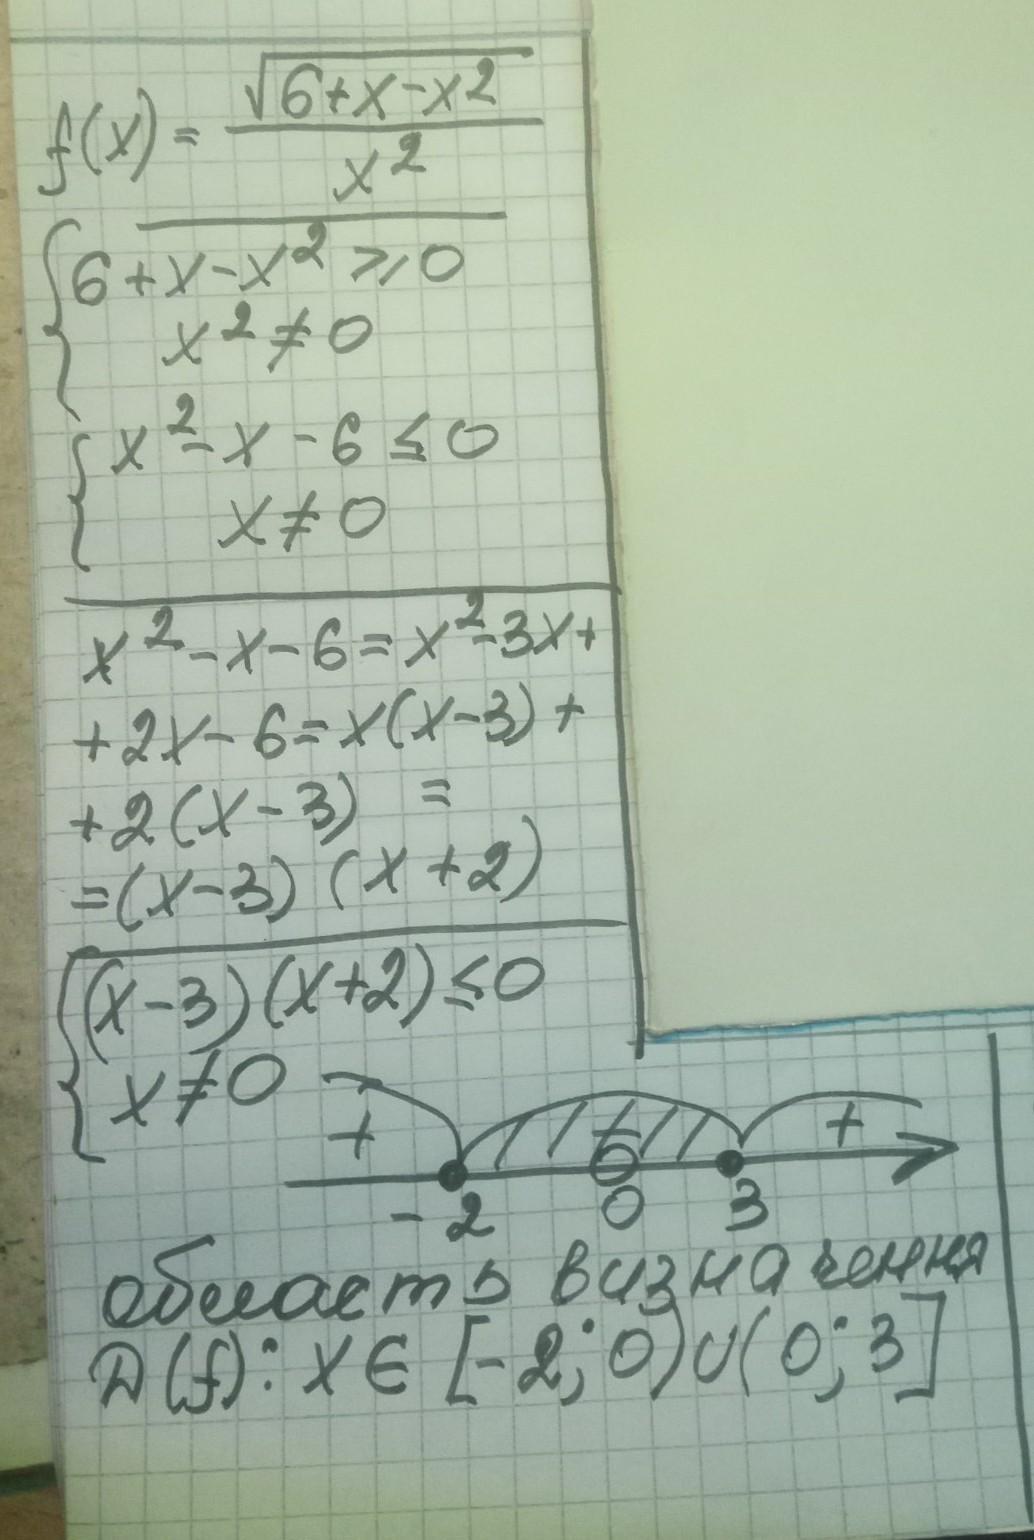 f(x) = √(6+x-x²) / x²
{ 6+x-x² ≥ 0
x² ≠ 0
{ x²-x-6 ≤ 0
x ≠ 0
x²-x-6 = x²-3x+
+2x-6 = x(x-3)+
+2(x-3) =
=(x-3)(x+2)
{ (x-3)(x+2) ≤ 0
x ≠ 0
+ - +
-2 0 3
область визначення
D(f): x ∈ [-2; 0) ∪ (0; 3]